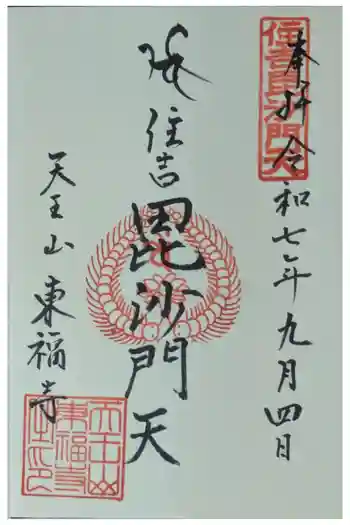 住吉毘沙門天
奉拝 令和七年九月四日
住吉毘沙門天
天王山 東福寺
天王山東福寺之印